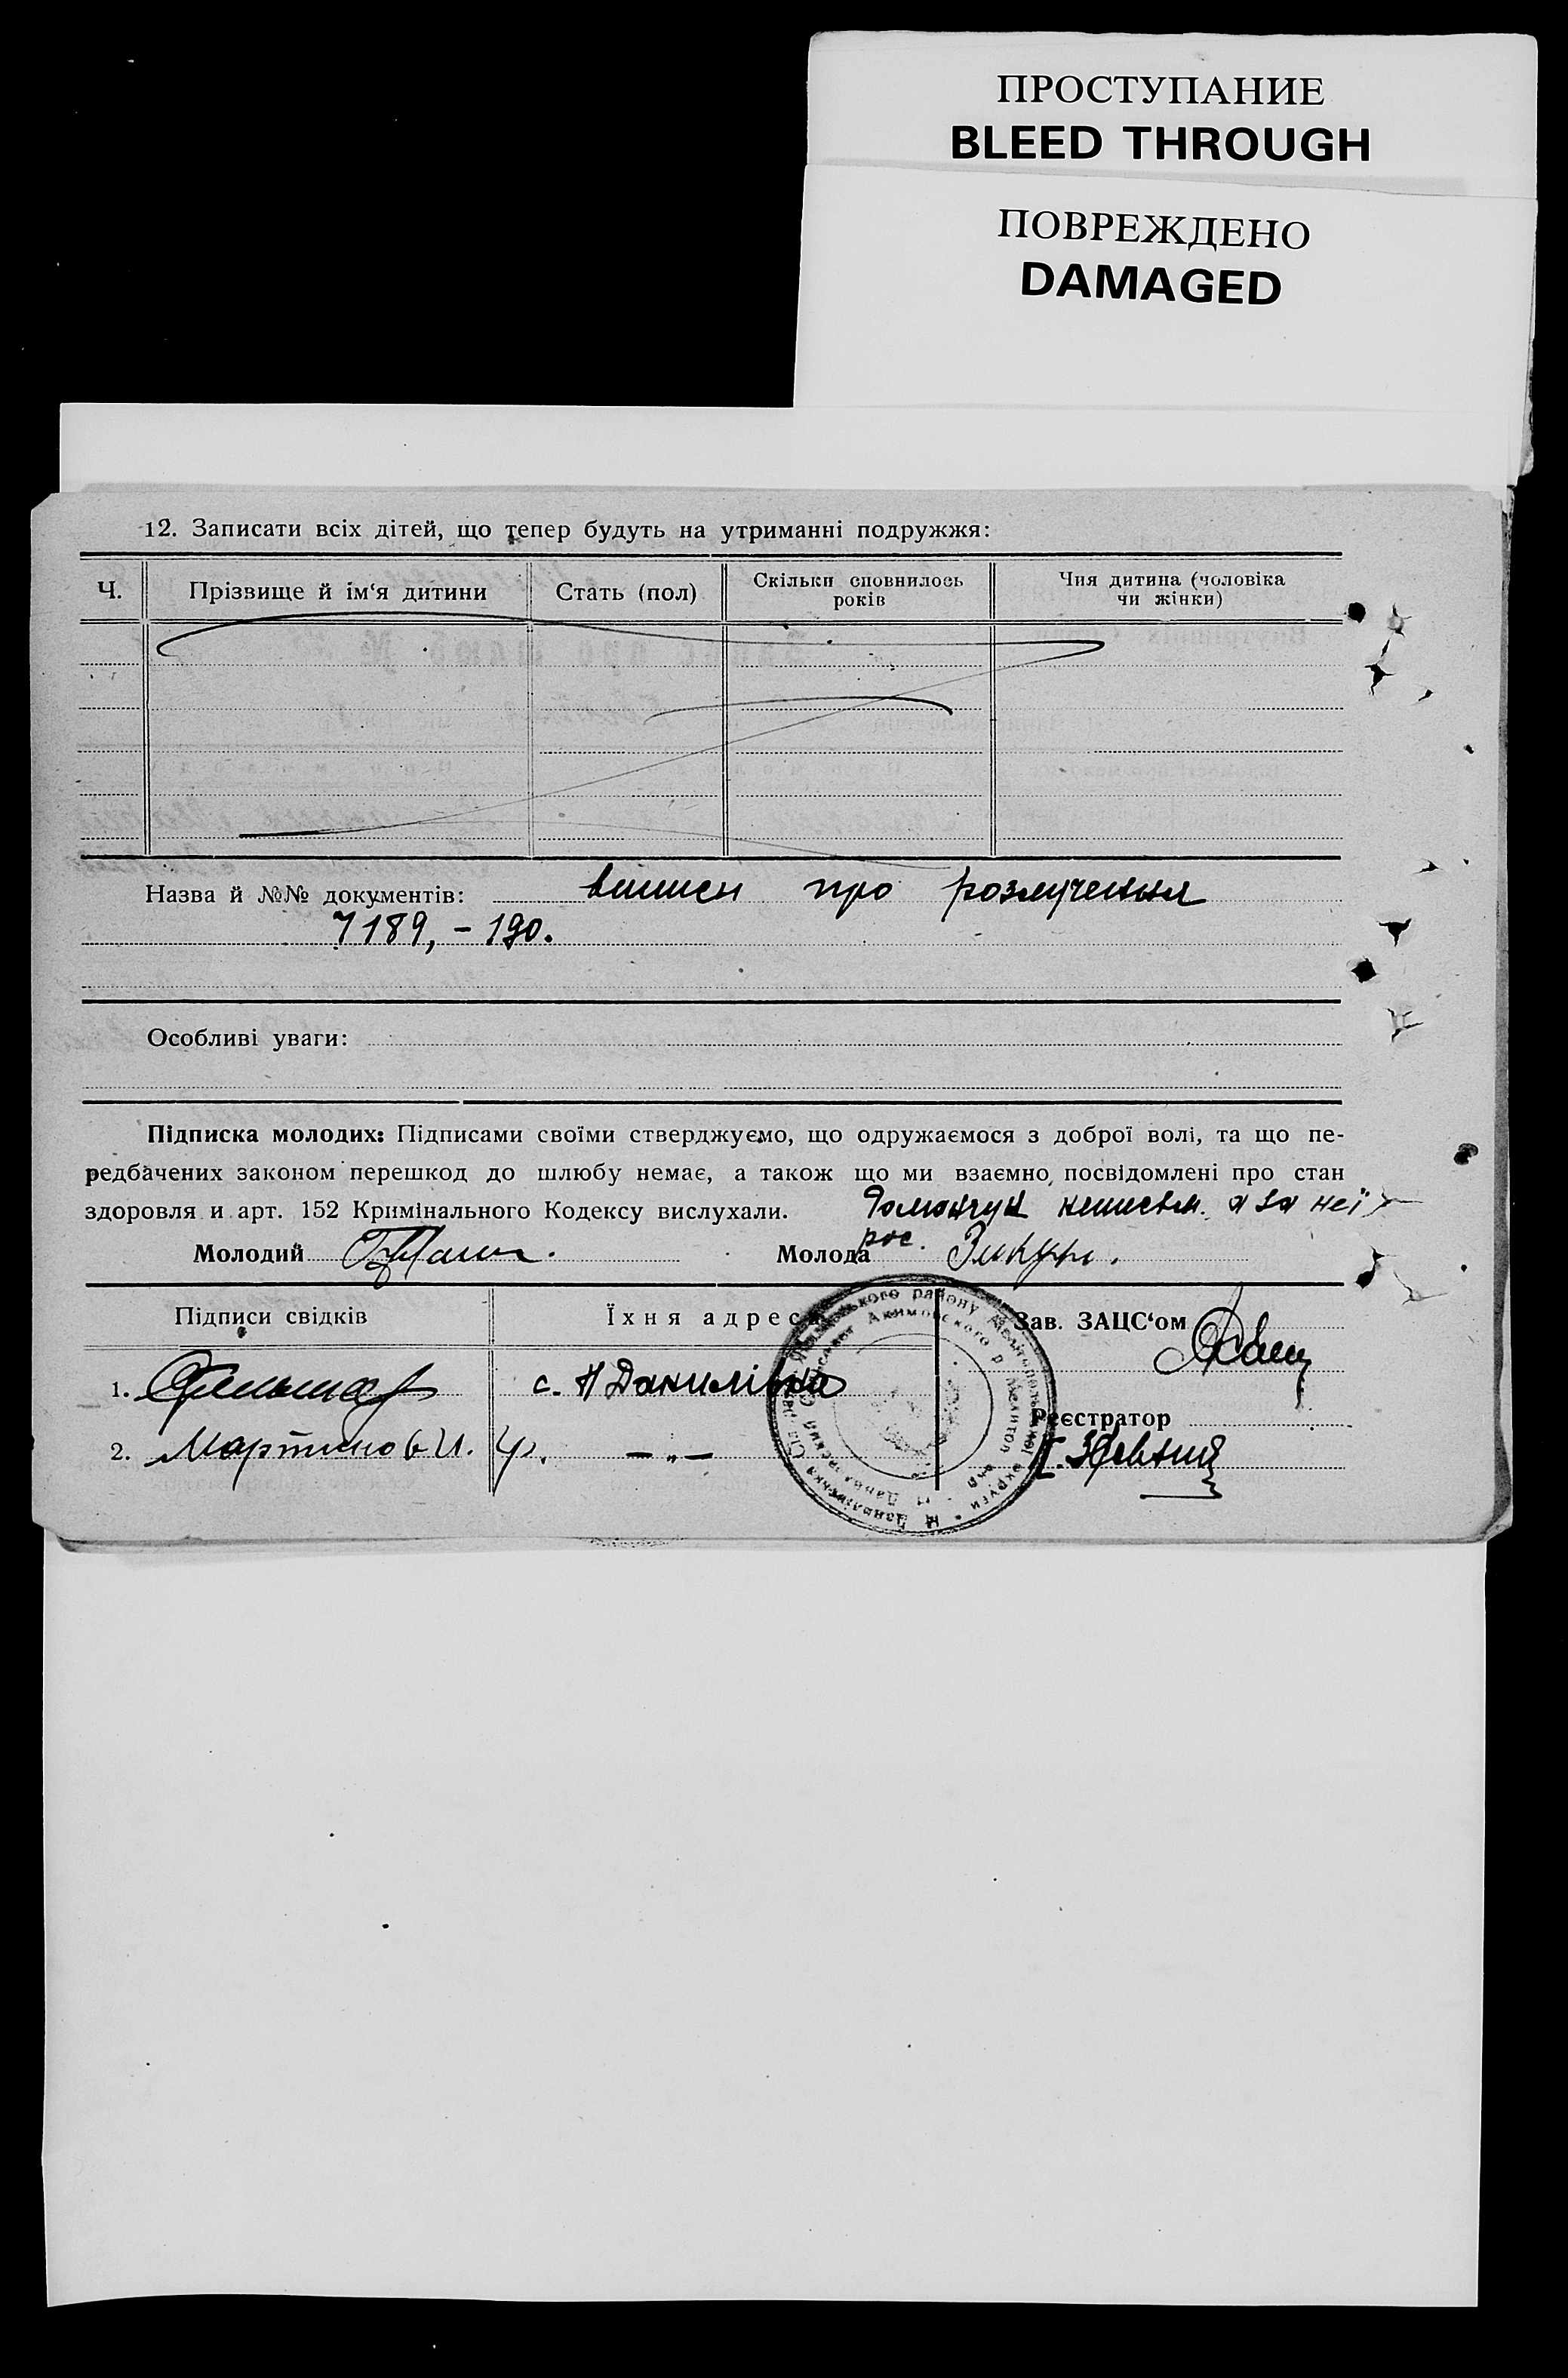 ПРОСТУПАНИЕ
BLEED THROUGH
ПОВРЕЖДЕНО
DAMAGED
12. Записати всіх дітей, що тепер будуть на утриманні подружжя:
Ч.
Прізвище й ім‘я дитини
Стать (пол)
Скільки сповнилось
років
Чия дитина (чоловіка
чи жінки)
Назва й №№ документів: про розлучення
7189, - 190.
Особливі уваги:
Підписка молодих: Підписами своїми стверджуємо, що одружаємося з доброї волі, та що пе-
редбачених законом перешкод до шлюбу немає, а також що ми взаємно посвідомлені про стан
здоровля и арт. 152 Кримінального Кодексу вислухали.
а за неї
рос.
Молодий
Молода
Підписи свідків
Їхня адреса
Зав. ЗАЦС‘ом
1. с. Н Данилівка
Реєстратор
2. Мартинов И. - „ -